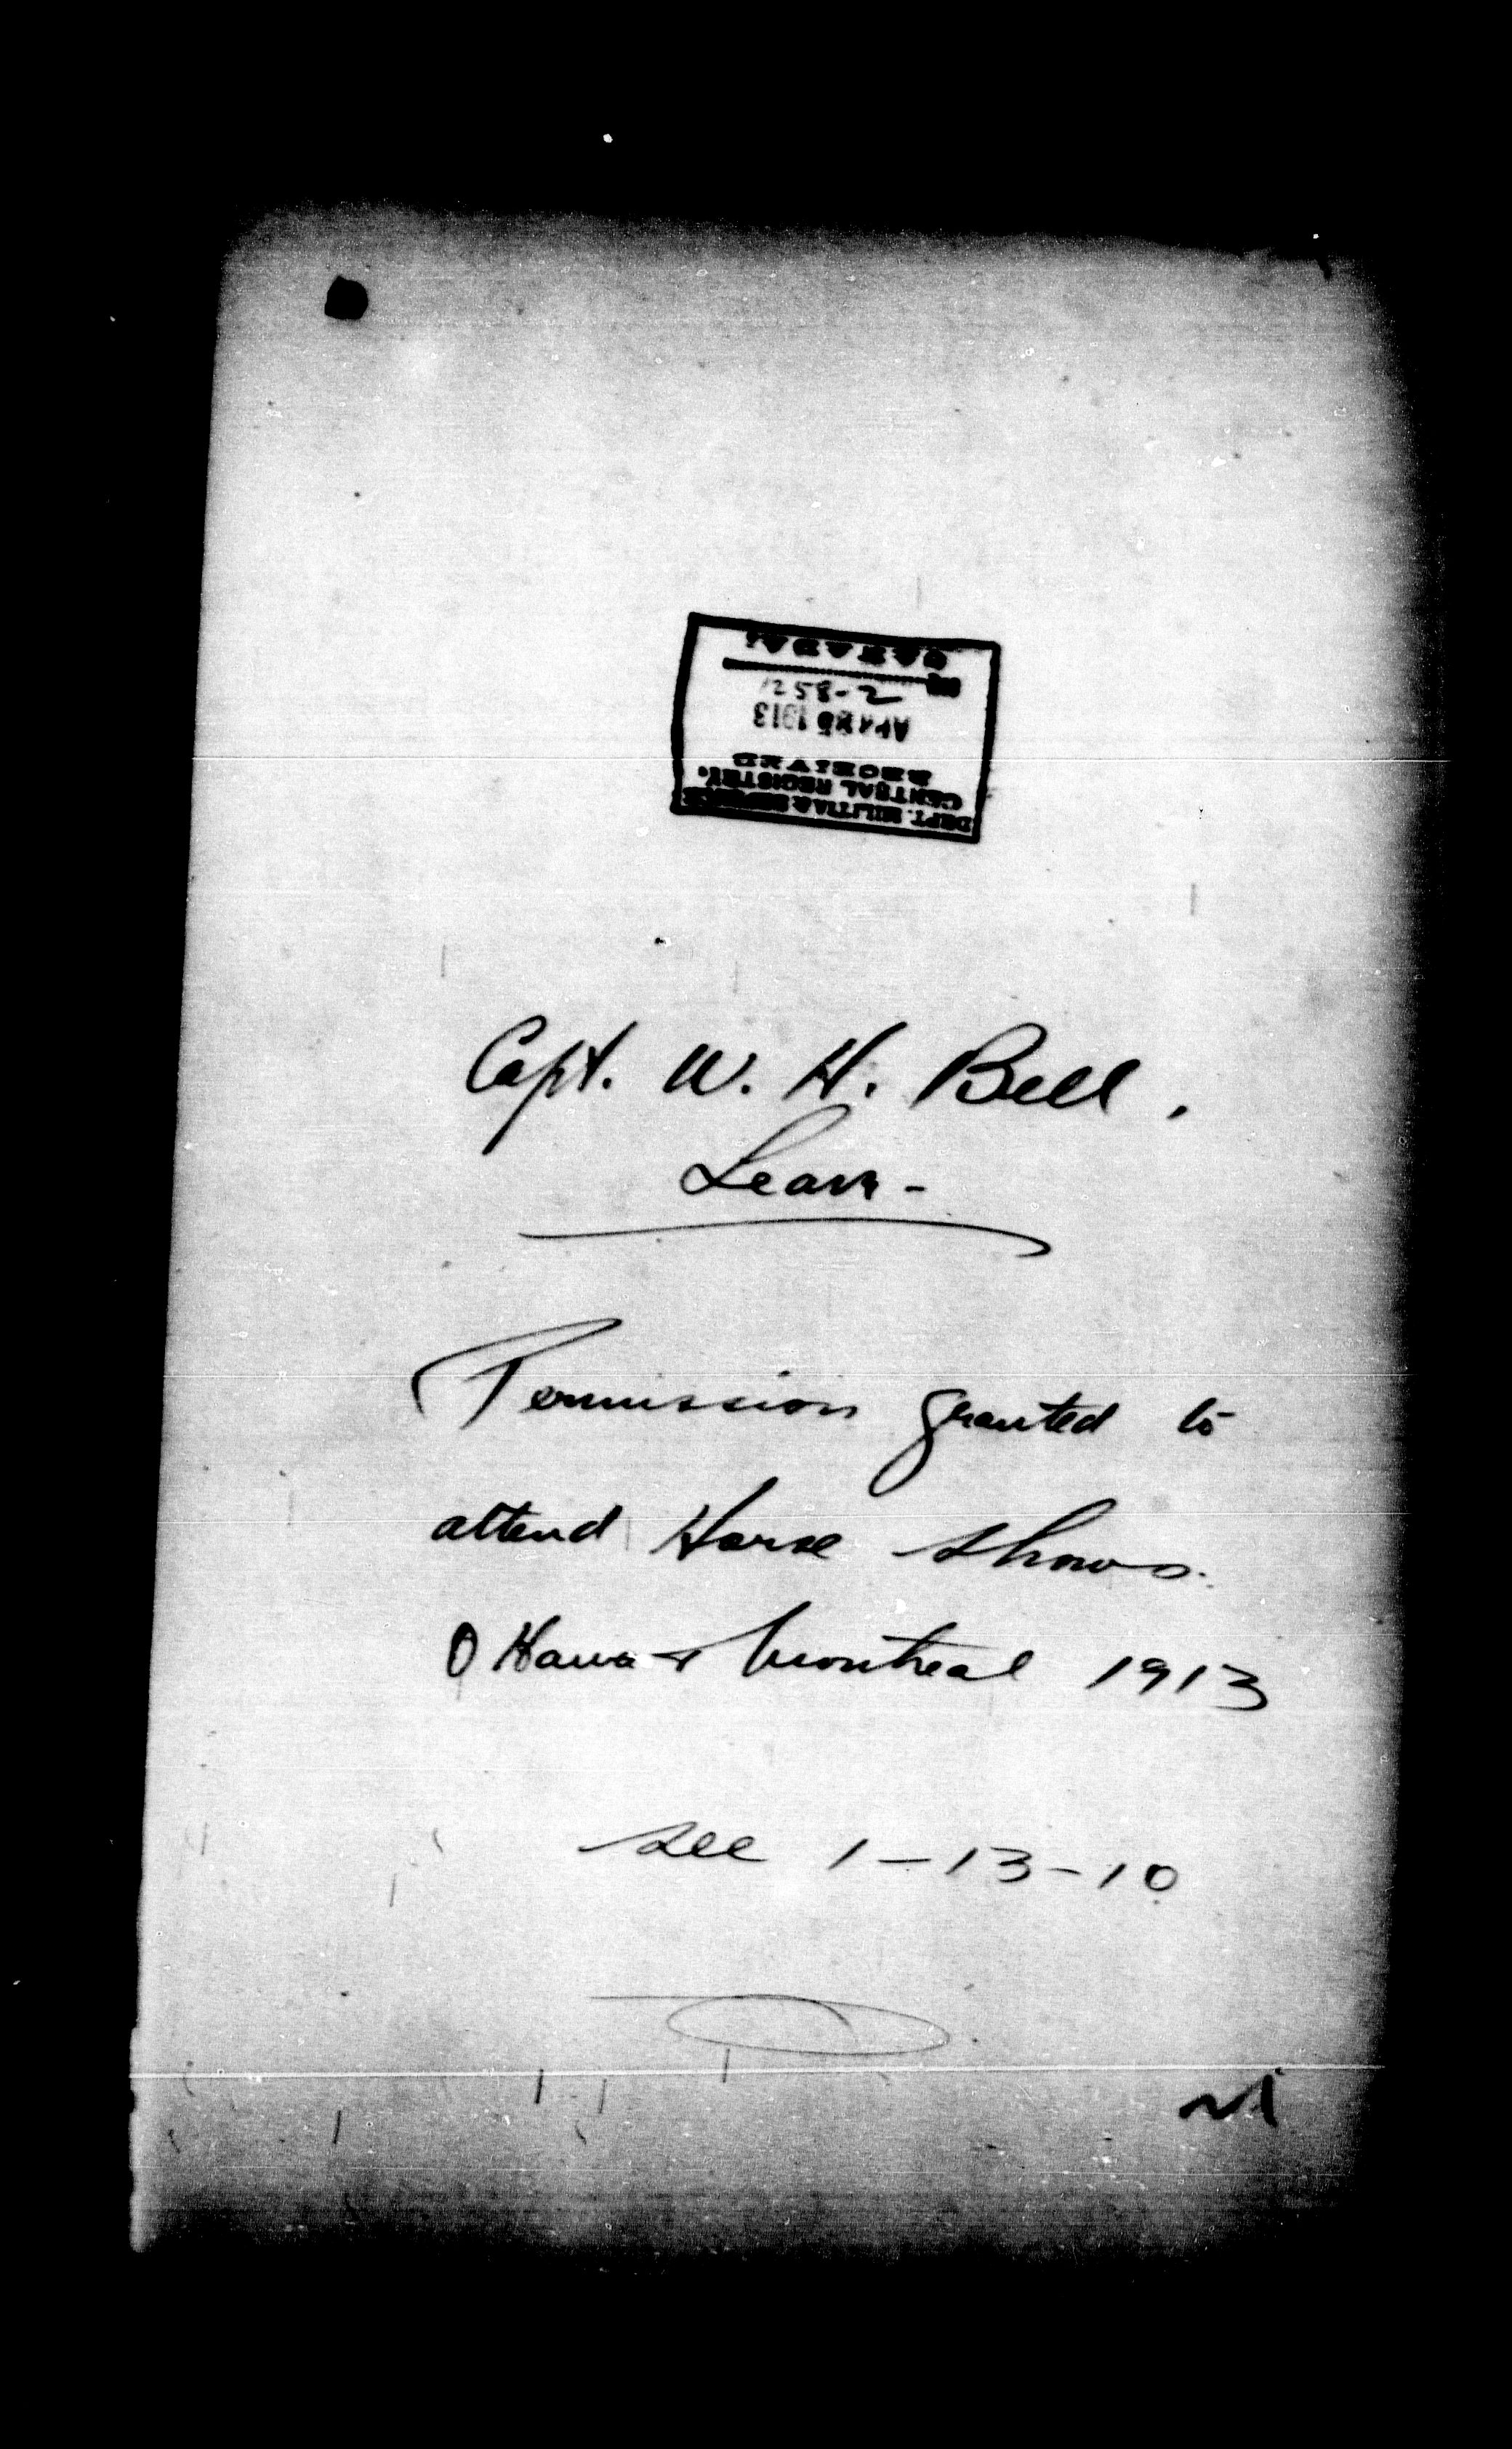 DEPT. MILITIA & DEFENCE
CENTRAL REGISTRY.
RECEIVED
APR 1913
CANADA
Capt. W. H. Bell.
Leave -
Permission granted to
attend Horse shows.
Ottawa & Montreal 1913
see 1-13-10